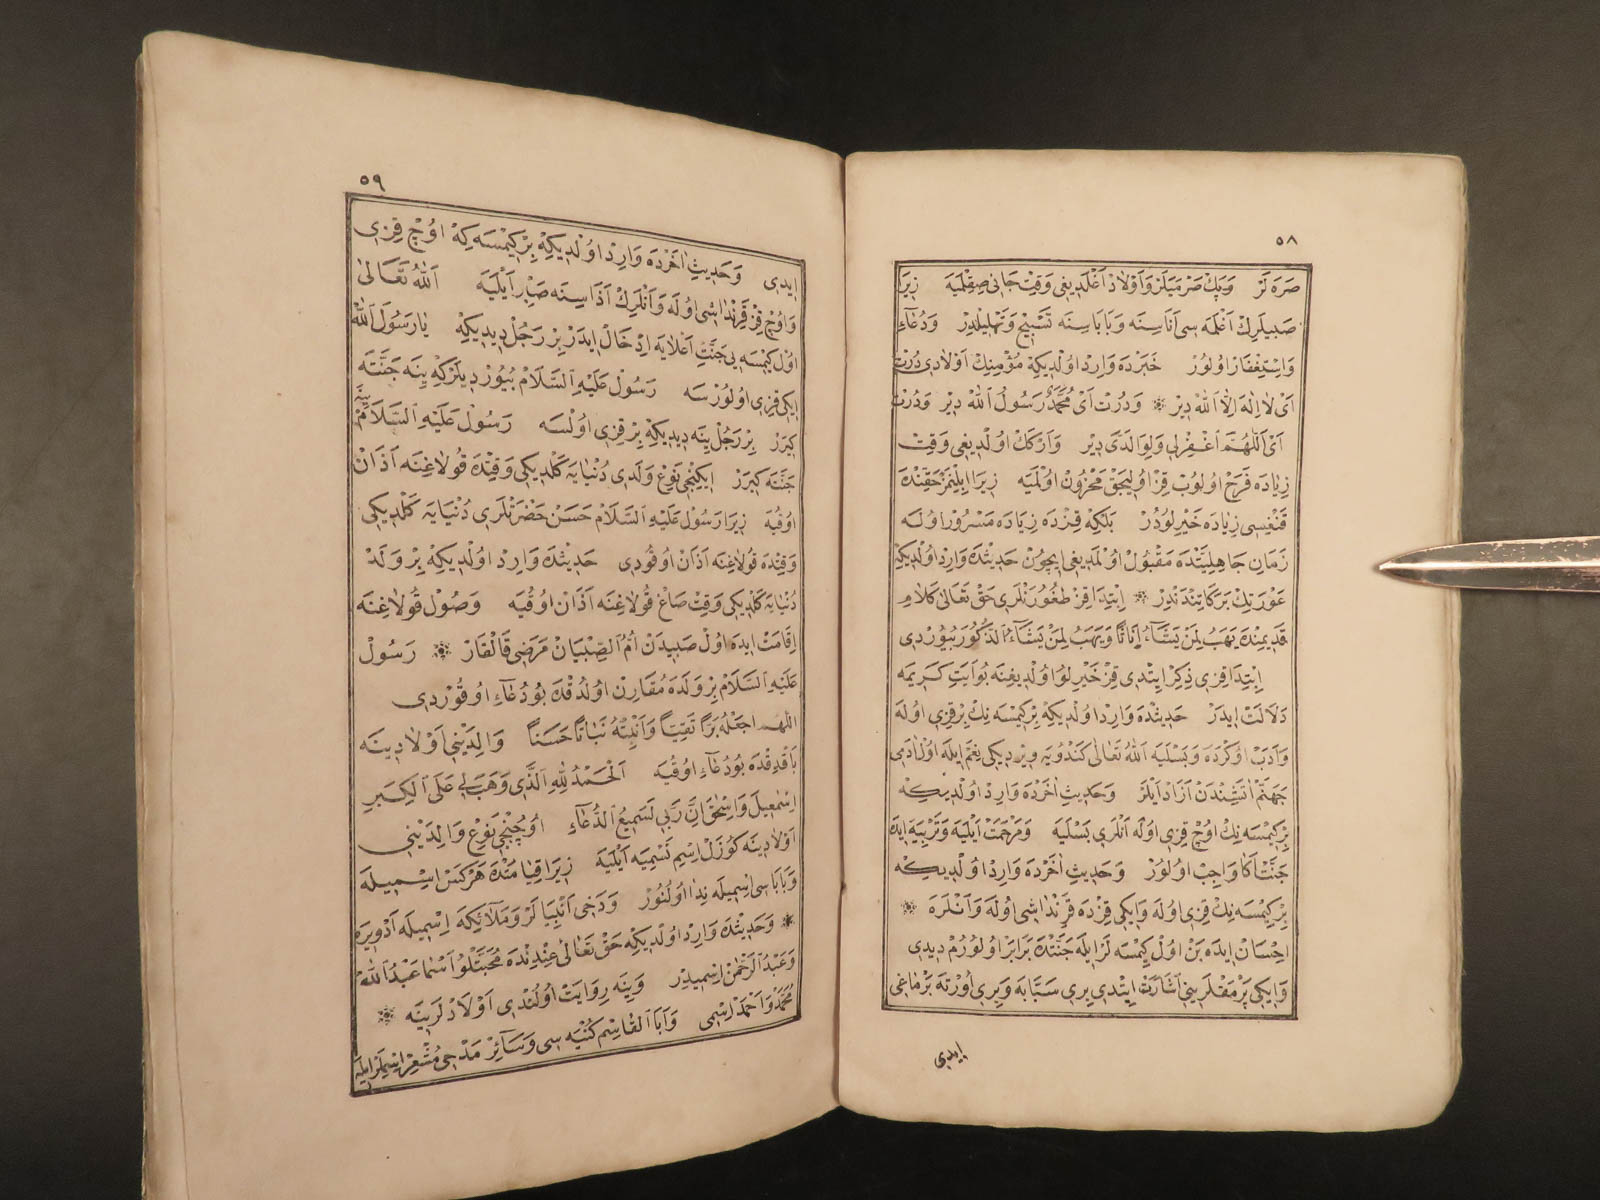 ٥٨
صره لر وپك صرميلر و اولاد اغلديغى وقت جانى صقلميه زيرا
صبيلرك اغلمه سى اناسنه وباباسنه تسبيح وتهليلدر ودعاء
واستغفار اولور خبرده وارد اولديكه مؤمنك اولادى درت
اى لا اله الا الله دير ۞ ودرت اى محمد رسول الله دير ودرت
اى اللهم اغفرلى ولوالدى دير واركك اولديغى وقت
زياده فرح اولوب قز اوليجق محزون اولميه زيرا بيلنمز حقنده
قنغيسى زياده خيرلودر بلكه قزده زياده مسرور اوله
زمان جاهليتده مقبول اولمديغى ايچون حديثده وارد اولديكه
عورتك بركاتندندر ۞ ابتدا قز طغورنلرى حق تعالى كلام
قديمنده يهب لمن يشاء اناثا ويهب لمن يشاء الذكور بيوردى
ابتدا قزى ذكر ايتدى قز خيرلو اولديغنه بو ايت كريمه
دلالت ايدر حديثده وارد اولديكه بر كيمسه نك بر قزى اوله
وادب اوكرده وبسليه الله تعالى كندويه ويرديكى نعم ايله اول ادمى
جهنم اتشندن ازاد ايلر وحديث اخرده وارد اولديكه
بر كيمسه نك اوچ قزى اوله انلرى بسليه ومرحمت ايليه وتربيه ايده
جنت اكا واجب اولور وحديث اخرده وارد اولديكه
بر كيمسه نك قزى اوله و ايكى قزده قرنداشى اوله وانلره ۞
احسان ايده بن اول كيمسه لر ايله جنتده برابر اولورم ديدى
وايكى پرمقلرينى اشارت ايتدى برى سبابه وبرى اورته پرماغى
ايدى
٥٩
ايدى وحديث اخرده وارد اولديكه بر كيمسه كه اوچ قزى
واوچ قز قرنداشى اوله وانلرك اذاسنه صبر ايليه الله تعالى
اول كيمسه يى جنت اعلايه ادخال ايدر بر رجل ديديكه يا رسول الله
ايكى قزى اولورسه رسول عليه السلام بيورديلركه ينه جنته
كيرر بر رجل ينه ديديكه بر قزى اولسه رسول عليه السلام ينه
جنته كيرر ايكنجى نوع ولدى دنيايه كلديكى وقتده قولاغنه اذان
اوقيه زيرا رسول عليه السلام حسن حضرتلرى دنيايه كلديكى
وقتده قولاغنه اذان اوقودى حديثده وارد اولديكه بر ولد
دنيايه كلديكى وقت صاغ قولاغنه اذان اوقيه وصول قولاغنه
اقامت ايده اول صبيدن ام الصبيان مرضى قالقار ۞ رسول
عليه السلام بر ولده مقارن اولدقده بو دعاء اوقوردى
اللهم اجعله برا تقيا وانبته نباتا حسنا والدينى اولادينه
باقدقده بو دعاء اوقيه الحمد لله الذى وهب لى على الكبر
اسمعيل واسحق ان ربى لسميع الدعاء اوچنجى نوع والدينى
اولادينه كوزل اسم تسميه ايليه زيرا قيامتده هركس اسميله
وباباسى اسميله ندا اولنور ودخى انبيالر وملائكه اسميله ادويره
۞ وحديثده وارد اولديكه حق تعالى عندنده محبتلو اسما عبد الله
وعبد الرحمن اسميدر وينه روايت اولندى اولادلرينه ۞
محمد واحمد اسمى وابا القاسم كنيه سى وسائر مدحى مشعر اسملر ايله